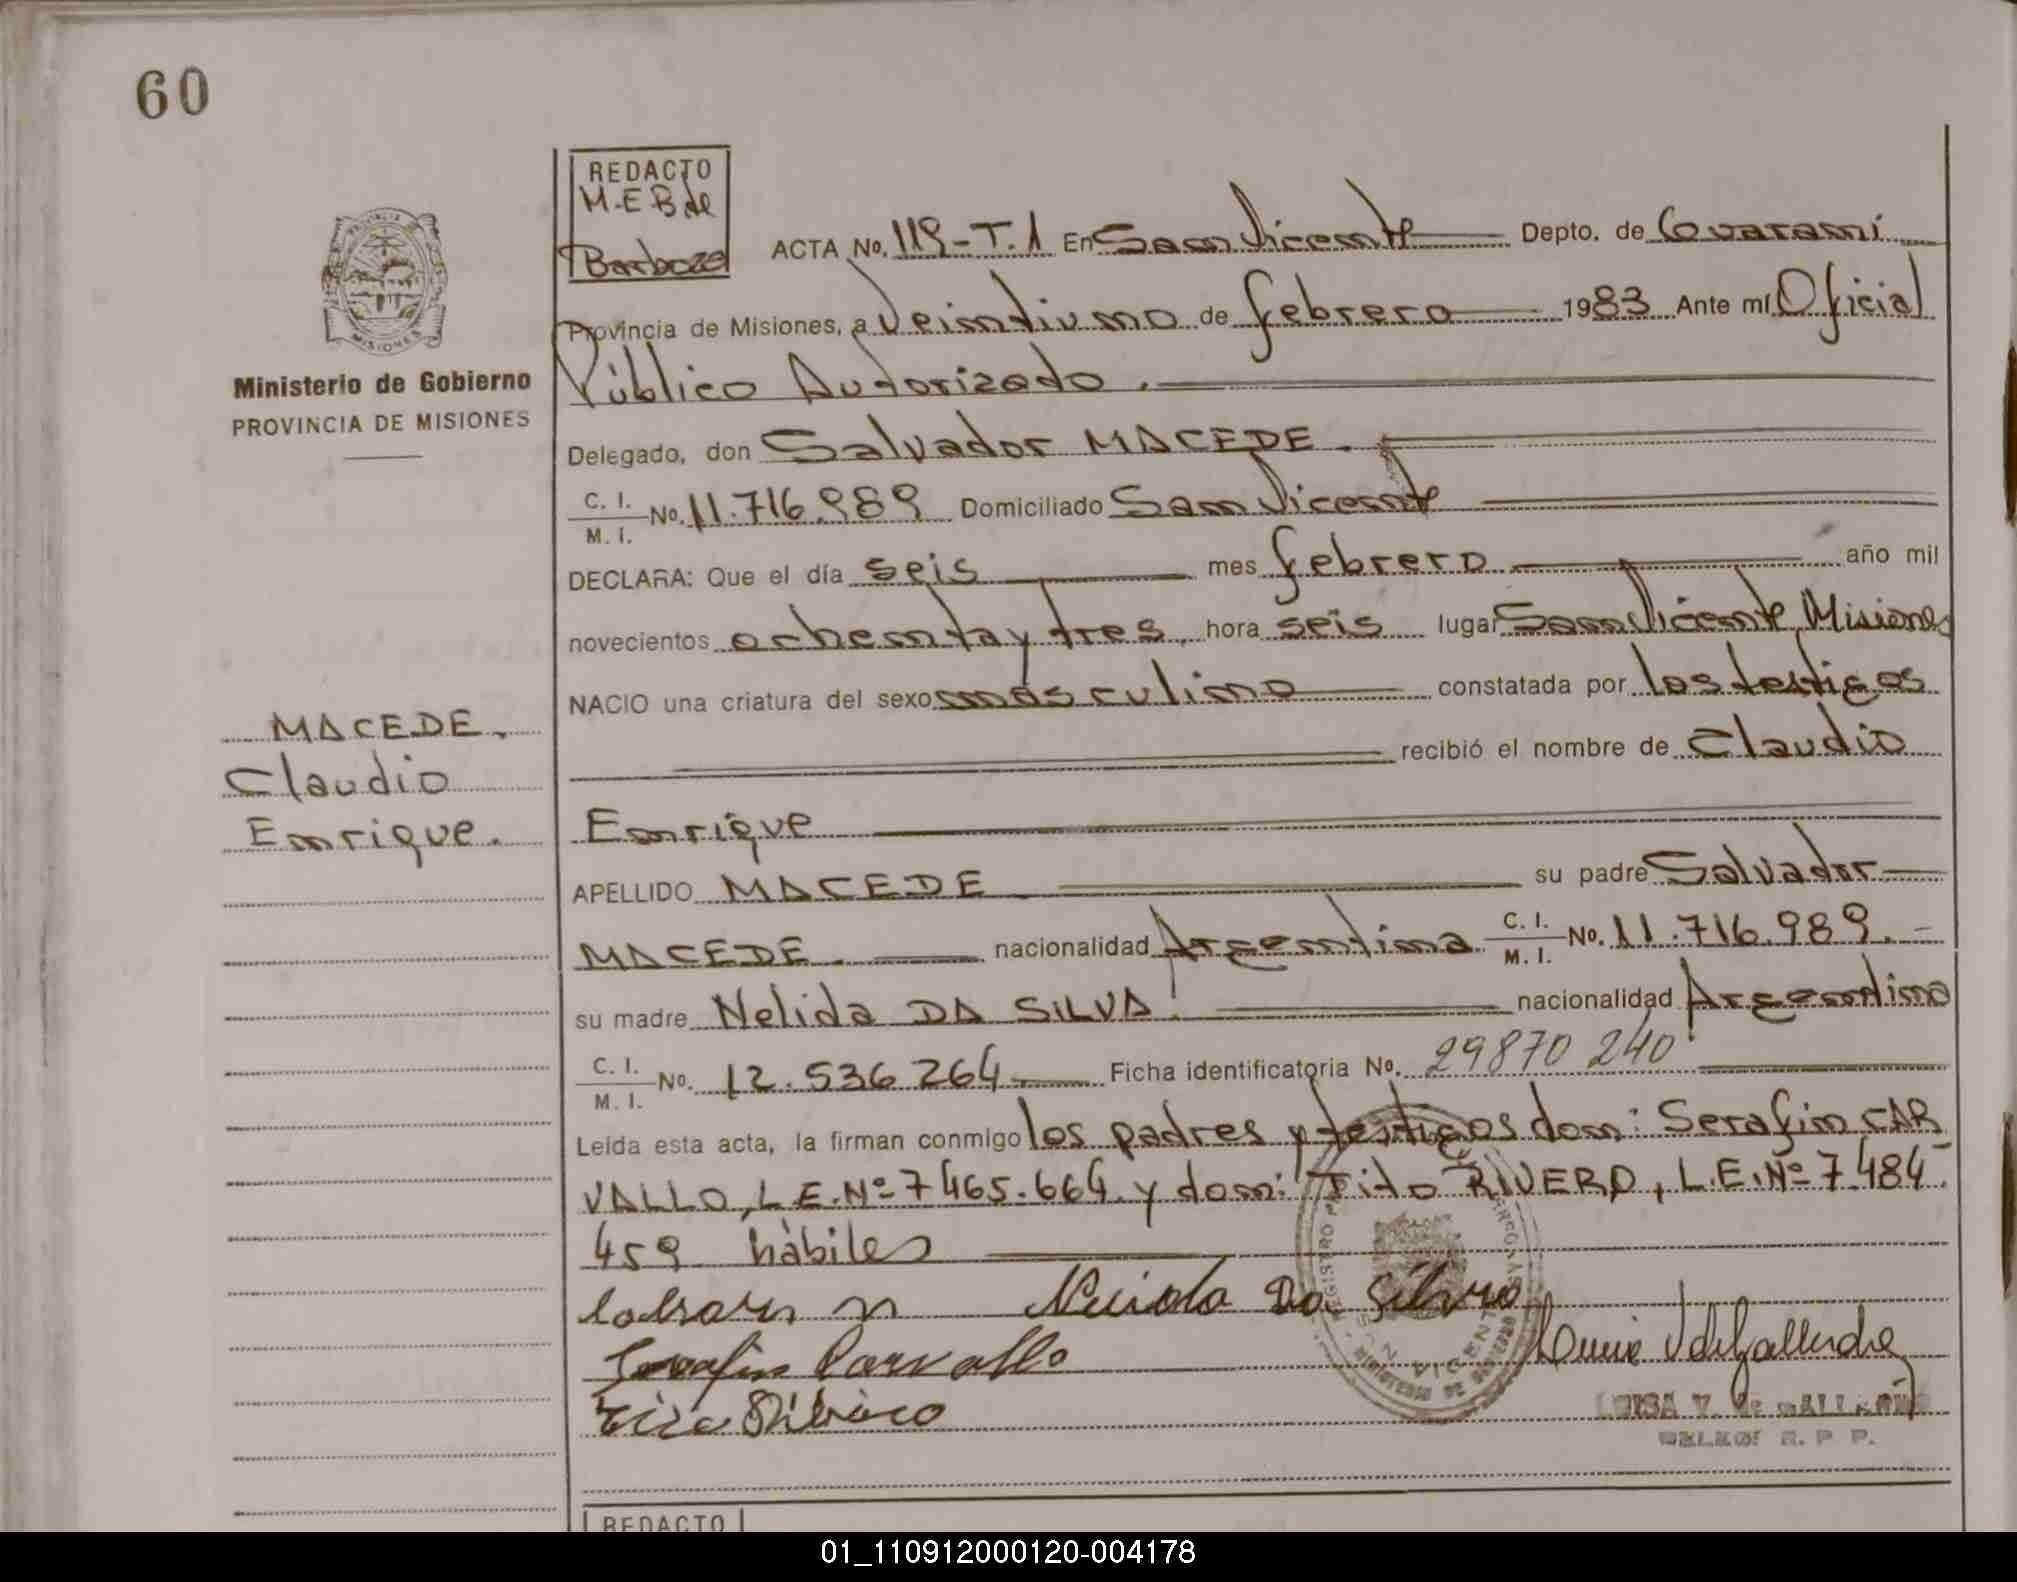 60
REDACTO
M.E.B de
Barboza
ACTA No. 119-T.1 En San Vicente Depto. de Guaraní
Provincia de Misiones, a Veintiuno de febrero 1983 Ante mí Oficial
Público Autorizado.
Delegado, don Salvador MACEDE.
C. I.
M. I. No. 11.716.989 Domiciliado San Vicente
DECLARA: Que el día seis mes febrero año mil
novecientos ochenta y tres, hora seis lugar San Vicente, Misiones
NACIO una criatura del sexo másculino constatada por los testigos
recibió el nombre de Claudio
Enrique
APELLIDO MACEDE su padre Salvador
MACEDE. nacionalidad Argentina C. I.
M. I. No. 11.716.989.-
su madre Nelida DA SILVA nacionalidad Argentina
C. I.
M. I. No. 12.536.264 Ficha identificatoria No. 29870 240
Leída esta acta, la firman conmigo los padres y testigos don: Serafin CAR
VALLO, L.E.Nº 7465.664 y don: Tito RIVERO, L.E.Nº 7.484.
459 hàbiles
Da Silva
Serafin Carvallo
PROVINCIA
MISIONES
Ministerio de Gobierno
PROVINCIA DE MISIONES
MACEDE.
Claudio
Enrique.
LUISA V. de
R. P. P.
REDACTO
01_110912000120-004178